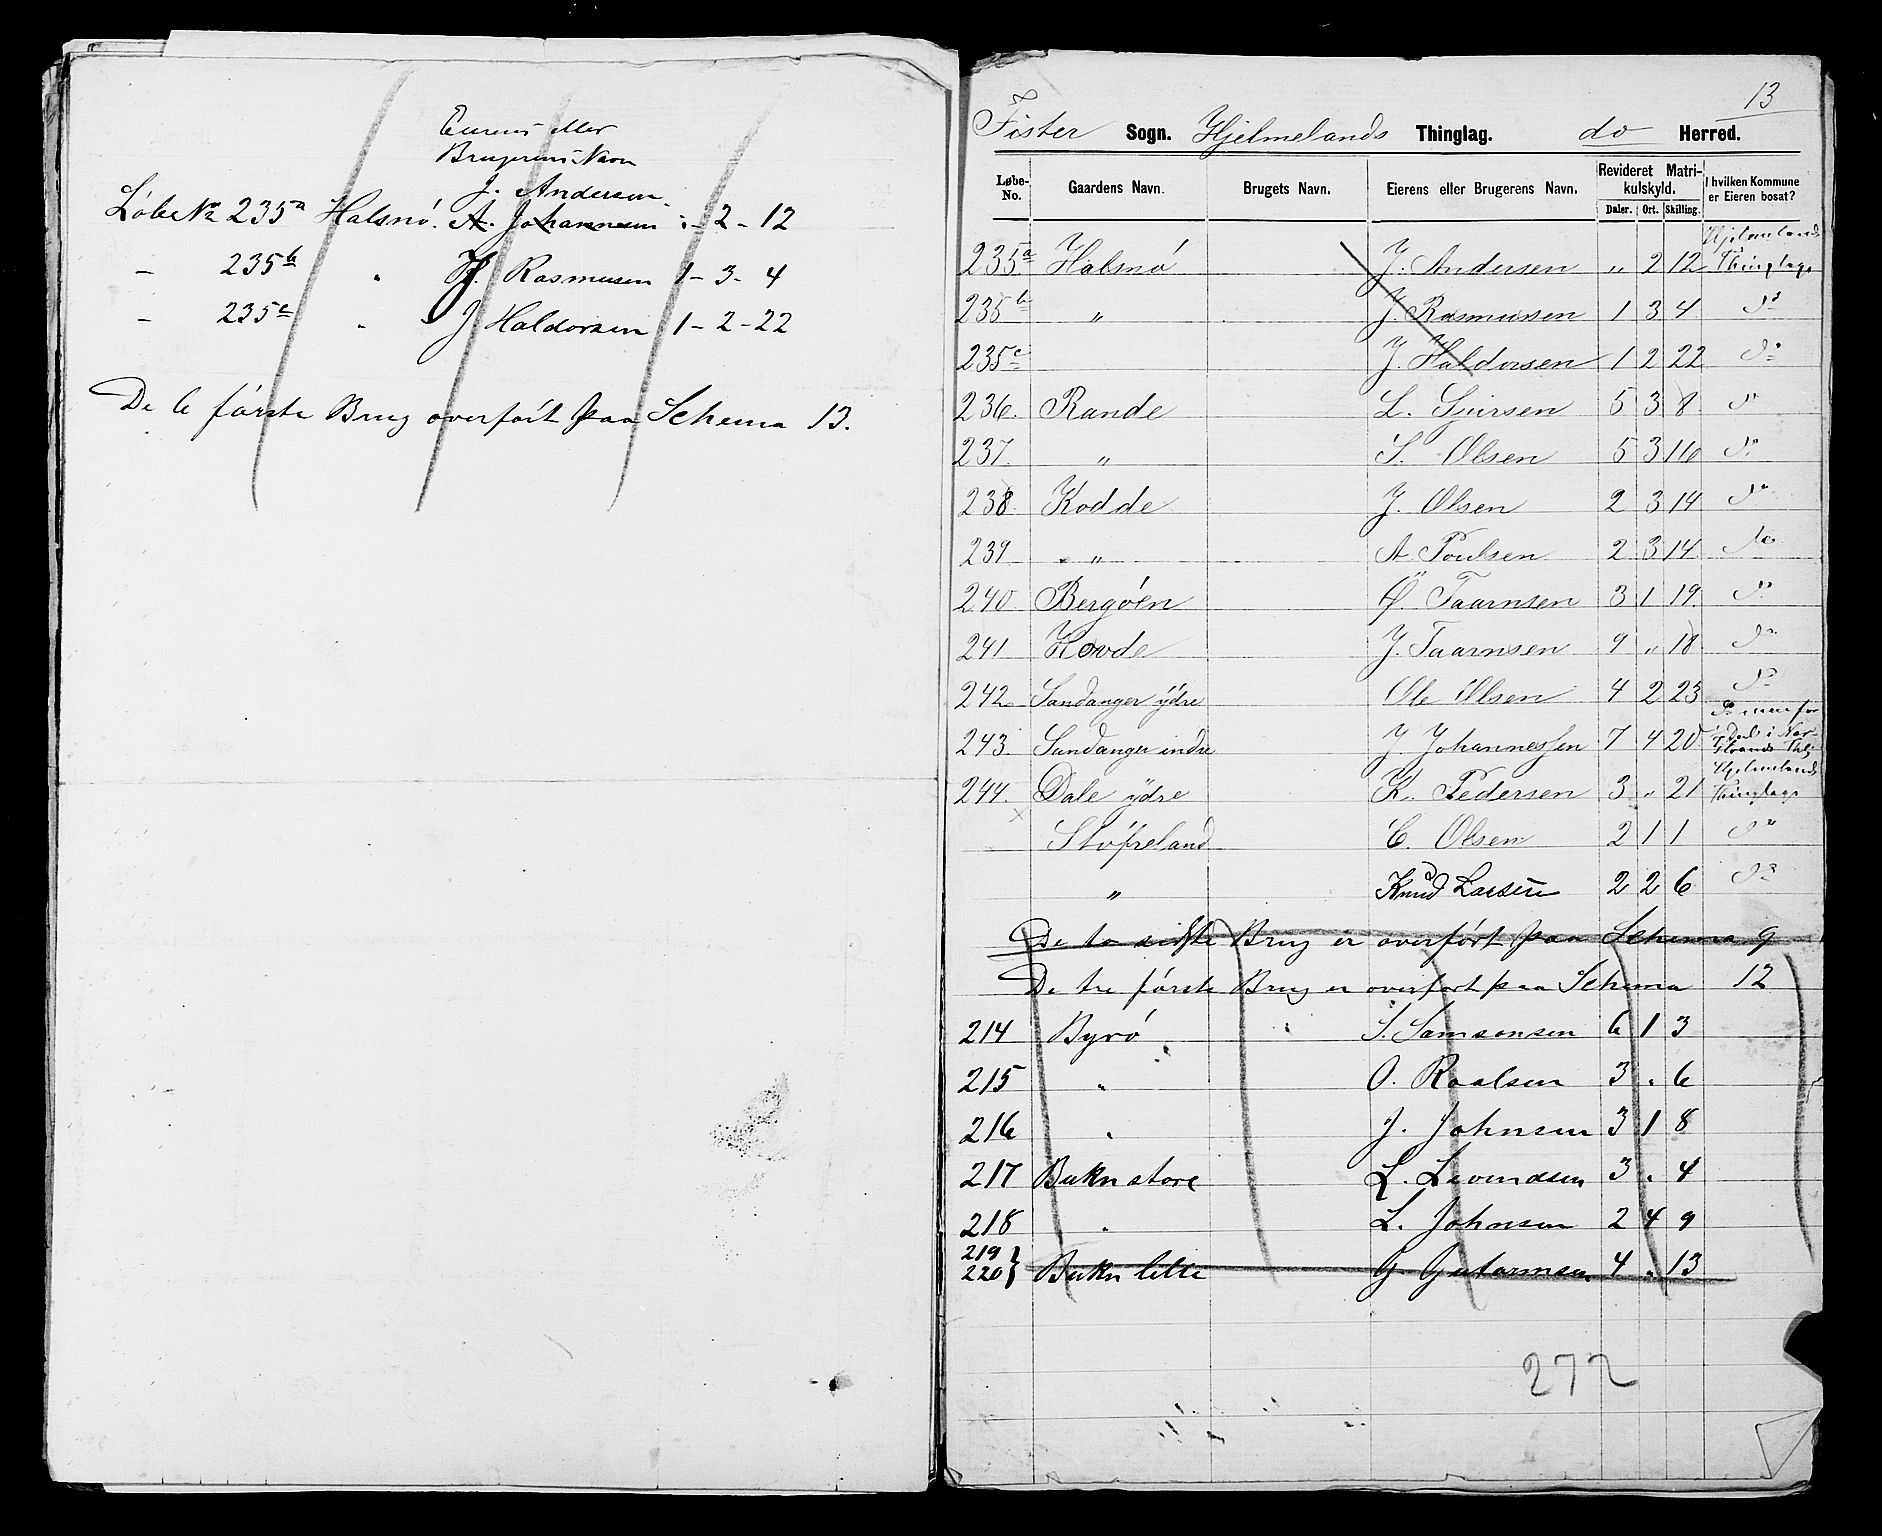 Eierens eller
Brugerens Navn
J. Andersen
Løbe No 235a Halsnø. A. Johannesen : - 2 - 12
- 235b " J. Rasmusen 1 - 3 - 4
- 235c " J Haldorsen 1 - 2 - 22
De 6 første Brug overført paa Schema 13.
13
Fister Sogn. Hjelmelands Thinglag. do Herred.
Løbe-No. Gaardens Navn. Brugets Navn. Eierens eller Brugerens Navn. Revideret Matrikulskyld. Daler. Ort. Skilling. I hvilken Kommune er Eieren bosat?
235a Halsnø J. Andersen " 2 12 Hjelmelands Thinglag
235b " J. Rasmussen 1 3 4 Do
235c J. Haldorsen 1 2 22 Do
236. Rande L. 5 3 8 Do
237. " S. Olsen 5 3 16 Do
238. Kodde J. Olsen 2 3 14 Do
239 " A. Poulsen 2 3 14 Do
240 Bergøen Ø. Taarnsen 3 1 19. Do
241 Hovde J. Taarnsen 9 " 18 Do
242. Sandanger ydre Ole Olsen 4 2 23 Do
243. Sandanger indre J. Johannessen 7 4 20 Do men for Deel i
244. Dale ydre K. Pedersen 3 " 21 Hjelmelands Thinglag
x Støfreland C. Olsen 2 1 1 Do
" Knud Larsen 2 2 6 Do
De to sidste Brug er overført paa Schema 9
De tre første Brug er overført paa Schema 12
214 Byrø S. Samsonsen 6 1 3
215 " O. Roalsen 3 " 6
216 " J. Johnsen 3 1 8
217 Bukn store L. 3 " 4
218 " L. Johnsen 2 4 9
219
220 } Bukn lille G. Gutormsen 4 " 13
272